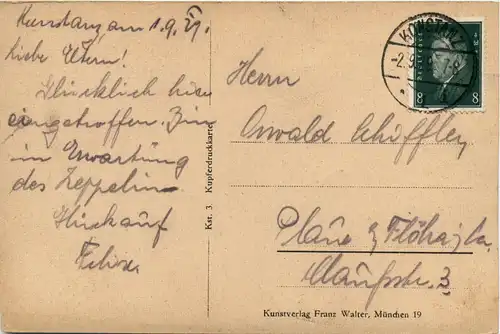 Konstanz, am 1.9.29.
Liebe Eltern!
Glücklich hier
eingetroffen. Bin
in Erwartung
des Zeppelin.
Glückauf
Felix
Kst. 3. Kupferdruckkarte
KONSTANZ
-2.9.
8 8
Herrn
Oswald Schiffley
Plaue b/ Flöha i. Sa.
3
Kunstverlag Franz Walter, München 19